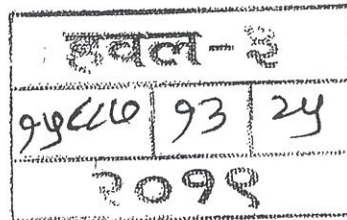 हवल-३
१५८८७ १३ २५
२०१९